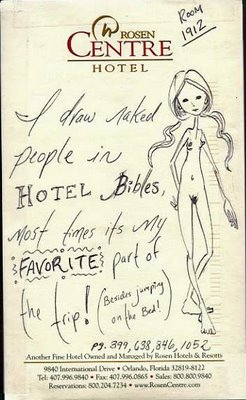 ROSEN
CENTRE
HOTEL
ROOM
1912
I draw naked
people in
HOTEL Bibles,
most times its my
FAVORITE part of
the trip! (Besides jumping
on the Bed!)
pg. 399, 638, 846, 1052
Another Fine Hotel Owned and Managed by Rosen Hotels & Resorts
9840 International Drive • Orlando, Florida 32819-8122
Tel: 407.996.9840 • Fax: 407.996.0865 • Sales: 800.800.9840
Reservations: 800.204.7234 • www.RosenCentre.com